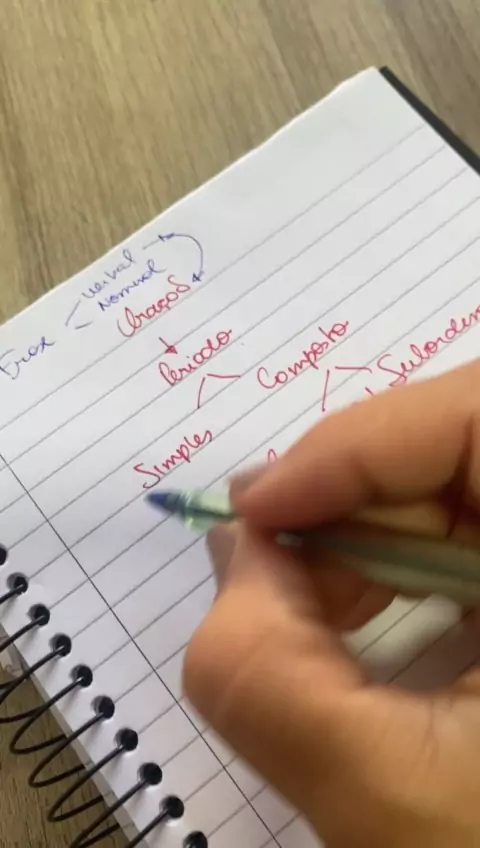 Frase
Verbal
Nominal
Oração
Período
Simples
Composto
Subordin